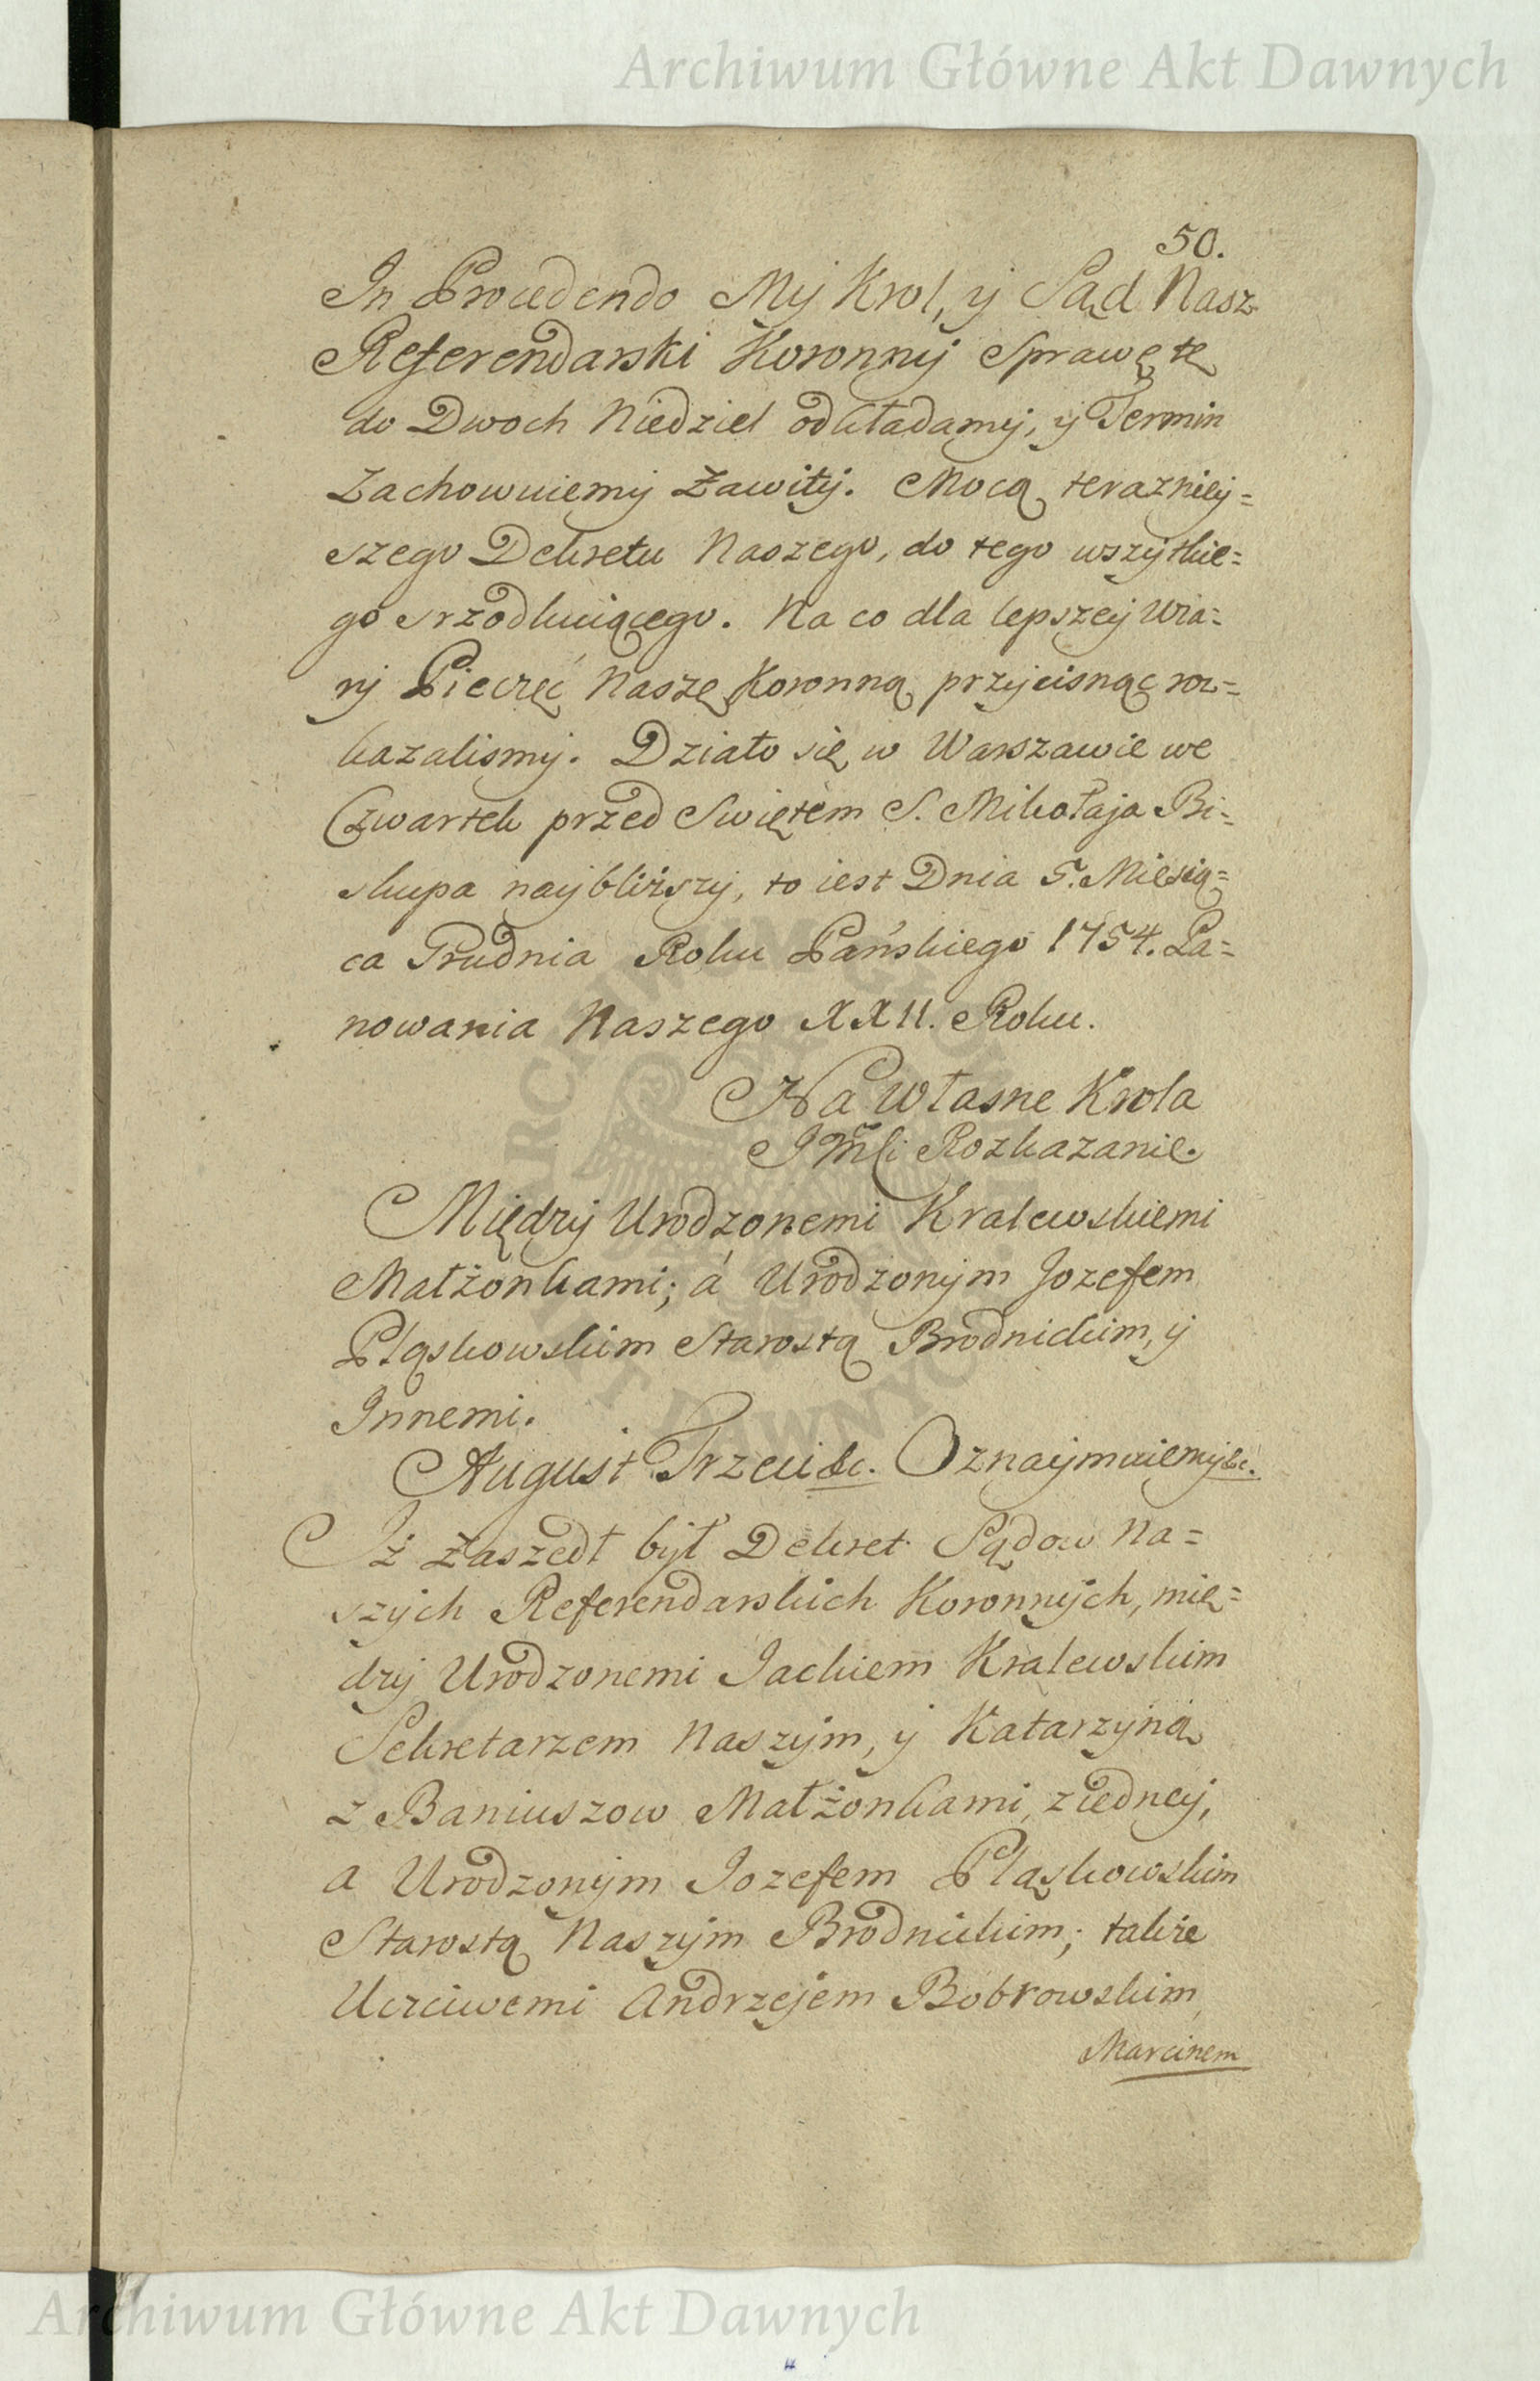 Archiwum Główne Akt Dawnych
50.
In Procedendo My Krol, y Sąd Nasz
Referendarski Koronny Sprawę tę
do Dwoch Niedziel odkładamy, y Termin
Zachowuiemy Zawity. Mocą terazniey=
szego Dekretu Naszego, do tego wszytkie=
go srzodkuiącego. Na co dla lepszey Wia=
ry Pieczęć Naszę Koronną przycisnąć roz=
kazalismy. Działo się w Warszawie we
Czwartek przed Swiętem S. Mikołaja Bi=
skupa naybliższy, to iest Dnia 5. Miesią=
ca Grudnia Roku Pańskiego 1754. Pa=
nowania Naszego XXII. Roku.
Na Własne Krola
JMści Rozkazanie.
Między Urodzonemi Kralewskiemi
Małżonkami; á Urodzonym Jozefem
Pląskowskim Starostą Brodnickim, y
Innemi.
August Trzeci &c. Oznaymuiemy &c.
Iż Zaszedł był Dekret Sądow Na=
szych Referendarskich Koronnych, mię=
dzy Urodzonemi Jackiem Kralewskim
Sekretarzem Naszym, y Katarzyną
z Baniuszow Małżonkami, z iedney,
a Urodzonym Jozefem Pląskowskim
Starostą Naszym Brodnickim; także
Uczciwemi Andrzejem Bobrowskim,
Marcinem
Archiwum Główne Akt Dawnych